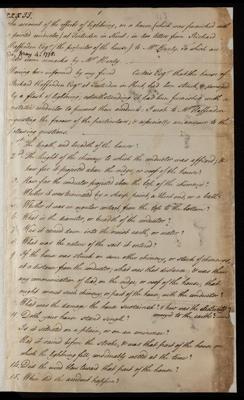 An account of the effects of lightning, on a house, which was furnished with
pointed conductors, at Tenterden in Kent: in two letters from Richard
Haffenden Esq. the proprietor of the house, to Mr. Henly. To which are
some remarks by Mr. Henly.
Having been informed by my friend Esq. that the house of
Richard Haffenden Esq. at Tenterden in Kent had been struck, & damaged
by a flash of lightning, notwithstanding it had been furnished with a
conductor to prevent those accidents. I wrote to Mr. Haffenden
requesting the favour of the particulars; & especially an answer to the
following questions.
1. The length, and breadth of the house?
2. The height of the chimney to which the conductor was affixed; &
how far it projected above the ridge, or roof of the house?
3. How far the conductor projected above the top of the chimney?
4. Whether it was terminated by a sharp point, a blunt end, or a ball?
5. Whether it was in contact from the top to the bottom?
6. What is the diameter, or breadth of the conductor?
7. Has it carried down into the moist earth, or water?
8. What was the nature of the soil it entered?
9. If the house was struck on some other chimney, or stack of chimneys,
at a distance from the conductor, what was that distance; & was there
any communication of lead on the ridge, or roof of the house, that
might connect such chimney, or part of the house, with the conductor?
10. What was the damage the house sustained? & how was the
conveyed to the earth?
11. Doth your house stand single?
12. Is it situated on a plain, or on an eminence?
13. Had it rained before the stroke, & was that part of the house on
which the lightning fell considerably wetted at the time?
14. Did the wind blow toward that part of the house?
15. When did the accident happen?